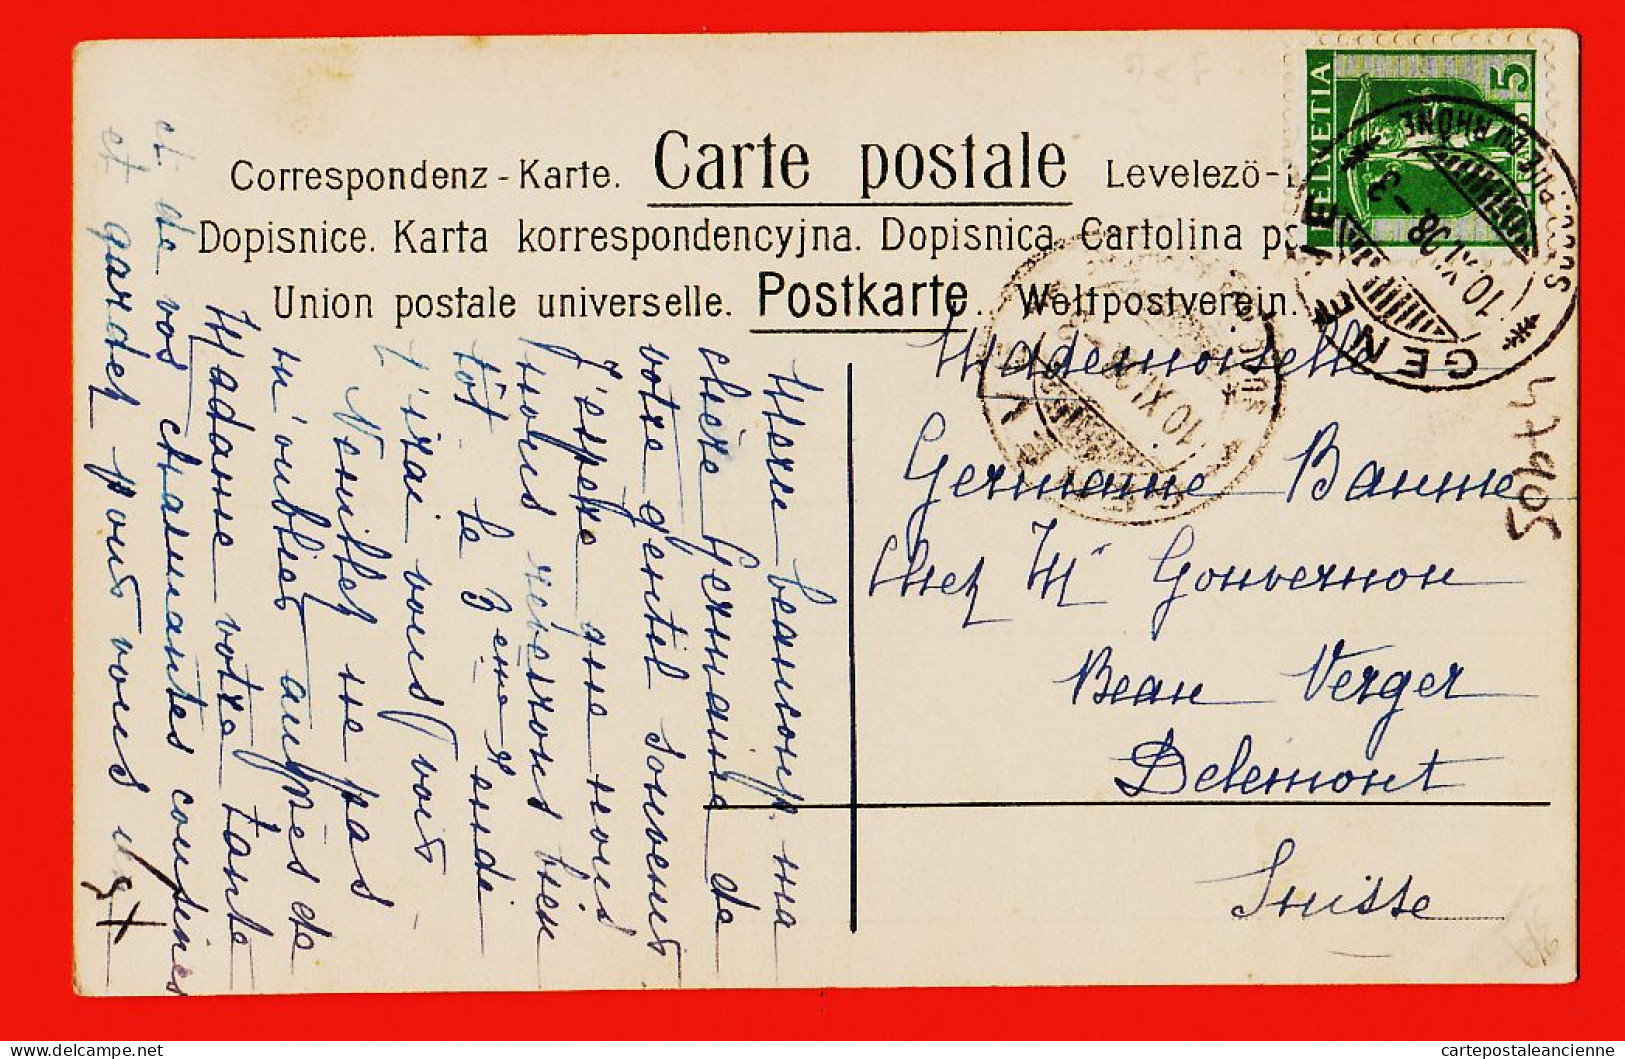 Carte postale
Correspondenz-Karte. Levelezö-L
Dopisnice. Karta korrespondencyjna. Dopisnica. Cartolina po
Union postale universelle. Postkarte. Weltpostverein.
HELVETIA 5
GENÈVE
SUCC. RUE DU RHÔNE
10.XI.08 - 3
10 XI
47905
Mademoiselle
Germaine Banme
Chez Mr Gouvernon
Beau Verger
Delemont
Suisse
Merci beaucoup ma
chère Germaine de
votre gentil souvenir
J'espère que nous
nous reverrons bien
tôt le 3eme Lundi
j'irai vous voir.
Veuillez ne pas
m'oublier auprès de
Madame votre tante
et de vos charmantes cousines
et gardez pour vous
cartepostaleancienne